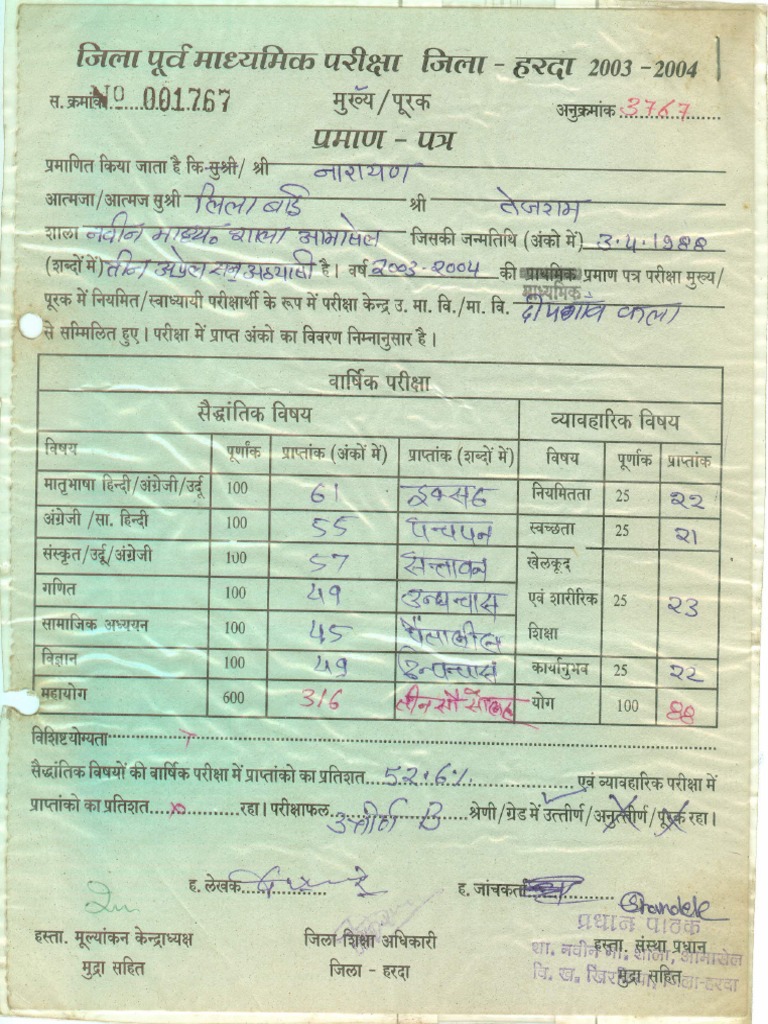 जिला पूर्व माध्यमिक परीक्षा जिला - हरदा 2003 - 2004
स. क्रमांक No 001767 मुख्य/पूरक अनुक्रमांक 3767
प्रमाण - पत्र
प्रमाणित किया जाता है कि सुश्री/ श्री नारायण
आत्मजा/आत्मज सुश्री लिला बाई श्री तेजराम
शाला नवीन माध्य. शाला आमासेल जिसकी जन्मतिथि (अंको में) 3.4.1988
(शब्दों में) तीन अप्रेल सन् अठयासी है। वर्ष 2003-2004 की प्राथमिक प्रमाण पत्र परीक्षा मुख्य/
माध्यमिक
पूरक में नियमित/स्वाध्यायी परीक्षार्थी के रूप में परीक्षा केन्द्र उ. मा. वि./मा. वि. दीपगांव कला
से सम्मिलित हुए। परीक्षा में प्राप्त अंको का विवरण निम्नानुसार है।
वार्षिक परीक्षा
सैद्धांतिक विषय व्यावहारिक विषय
विषय पूर्णांक प्राप्तांक (अंकों में) प्राप्तांक (शब्दों में) विषय पूर्णांक प्राप्तांक
मातृभाषा हिन्दी/अंग्रेजी/उर्दू 100 61 इकसठ नियमितता 25 २२
अंग्रेजी /सा. हिन्दी 100 55 पन्चपन स्वच्छता 25 २1
संस्कृत/उर्दू/अंग्रेजी 100 57 सन्तावन खेलकूद
गणित 100 49 उन्पन्चास एवं शारीरिक 25 २3
सामाजिक अध्ययन 100 45 पैंतालीस शिक्षा
विज्ञान 100 49 उन्पन्चास कार्यानुभव 25 २२
महायोग 600 316 तीन सौ सोलह योग 100 88
विशिष्ट योग्यता
सैद्धांतिक विषयों की वार्षिक परीक्षा में प्राप्तांको का प्रतिशत 52.6% एवं व्यावहारिक परीक्षा में
प्राप्तांको का प्रतिशत रहा। परीक्षाफल उत्तीर्ण B श्रेणी/ग्रेड में उत्तीर्ण/अनुत्तीर्ण/पूरक रहा।
ह. लेखक ह. जांचकर्ता
प्रधान पाठक
हस्ता. मूल्यांकन केन्द्राध्यक्ष जिला शिक्षा अधिकारी हस्ता. संस्था प्रधान
शा. नवीन मा. शाला, आमासेल
मुद्रा सहित जिला - हरदा मुद्रा सहित
वि. ख. जिला-हरदा